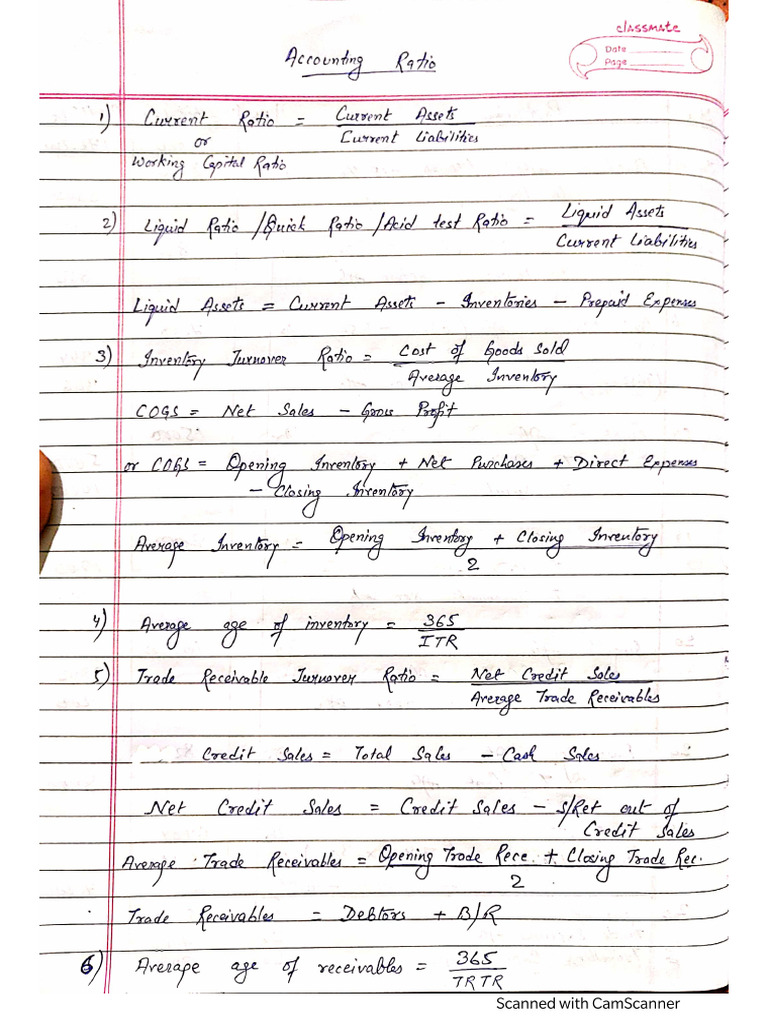 classmate
Date
Page
Accounting Ratio
1) Current Ratio = Current Assets
Current Liabilities
or
Working Capital Ratio
2) Liquid Ratio / Quick Ratio / Acid test Ratio = Liquid Assets
Current Liabilities
Liquid Assets = Current Assets - Inventories - Prepaid Expenses
3) Inventory Turnover Ratio = Cost of Goods Sold
Average Inventory
COGS = Net Sales - Gross Profit
or COGS = Opening Inventory + Net Purchases + Direct Expenses
- Closing Inventory
Average Inventory = Opening Inventory + Closing Inventory
2
4) Average age of inventory = 365
ITR
5) Trade Receivable Turnover Ratio = Net Credit Sales
Average Trade Receivables
Credit Sales = Total Sales - Cash Sales
Net Credit Sales = Credit Sales - S/Ret out of
Credit Sales
Average Trade Receivables = Opening Trade Rece. + Closing Trade Rec.
2
Trade Receivables = Debtors + B/R
6) Average age of receivables = 365
TRTR
Scanned with CamScanner